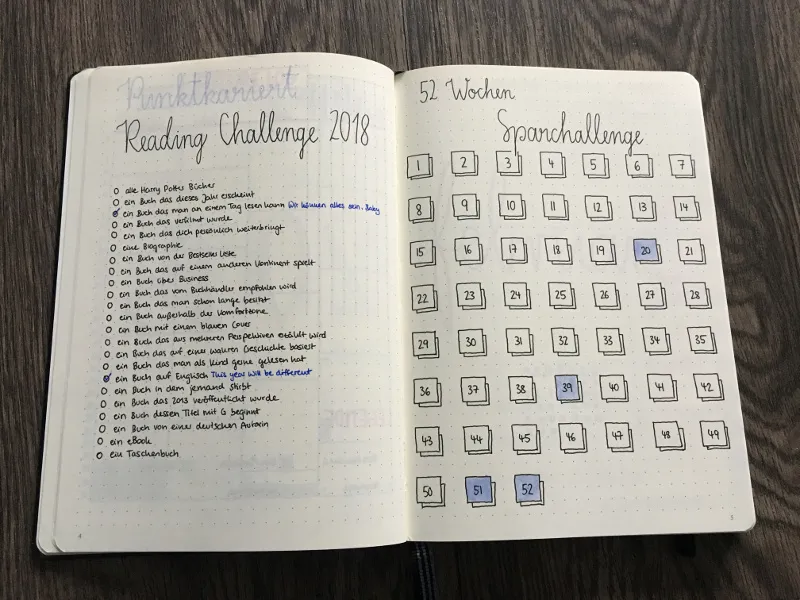 Punktkariert
Reading Challenge 2018
alle Harry Potter Bücher
ein Buch das dieses Jahr erscheint
ein Buch das man an einem Tag lesen kann Wir können alles sein, Baby
ein Buch das verfilmt wurde
ein Buch das dich persönlich weiterbringt
eine Biographie
ein Buch von der Bestseller Liste
ein Buch das auf einem anderen Kontinent spielt
ein Buch über Business
ein Buch das vom Buchhändler empfohlen wird
ein Buch das man schon lange besitzt
ein Buch außerhalb der Komfortzone
ein Buch mit einem blauen Cover
ein Buch das aus mehreren Perspektiven erzählt wird
ein Buch das auf einer wahren Geschichte basiert
ein Buch das man als Kind gerne gelesen hat
ein Buch auf Englisch This year will be different
ein Buch in dem jemand stirbt
ein Buch das 2013 veröffentlicht wurde
ein Buch dessen Titel mit G beginnt
ein Buch von einer deutschen Autorin
ein eBook
ein Taschenbuch
4
52 Wochen
Sparchallenge
1 2 3 4 5 6 7
8 9 10 11 12 13 14
15 16 17 18 19 20 21
22 23 24 25 26 27 28
29 30 31 32 33 34 35
36 37 38 39 40 41 42
43 44 45 46 47 48 49
50 51 52
5